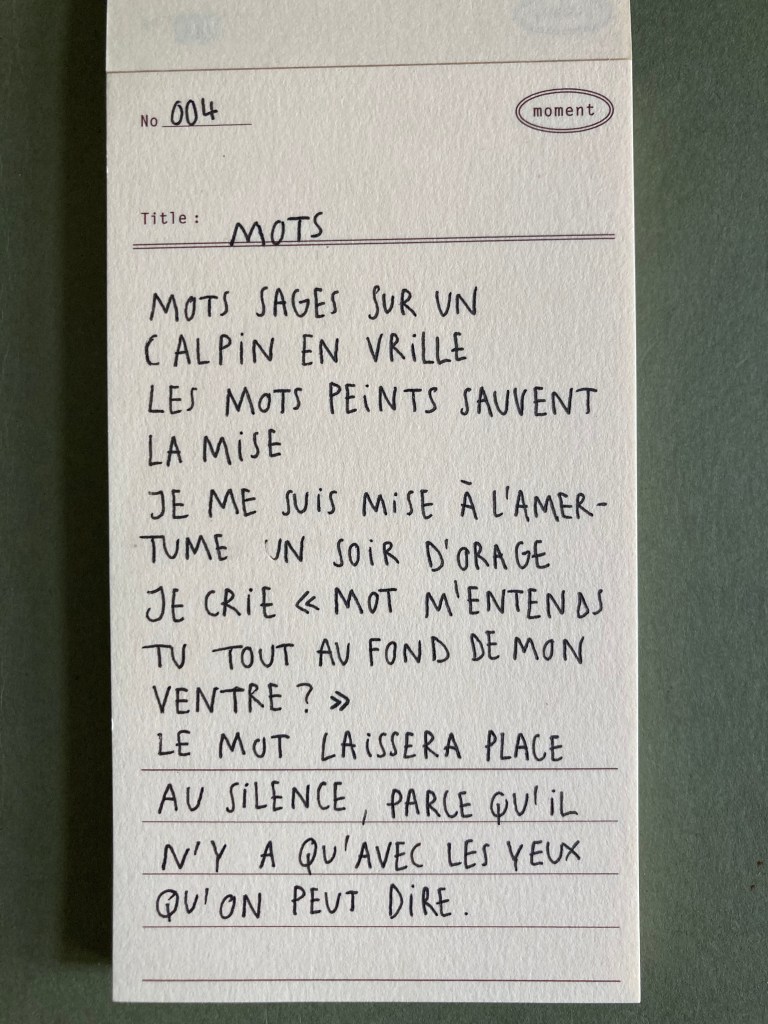 No 004
moment
Title : MOTS
MOTS SAGES SUR UN
CALPIN EN VRILLE
LES MOTS PEINTS SAUVENT
LA MISE
JE ME SUIS MISE À L'AMER-
TUME UN SOIR D'ORAGE
JE CRIE « MOT M'ENTENDS
TU TOUT AU FOND DE MON
VENTRE ? »
LE MOT LAISSERA PLACE
AU SILENCE, PARCE QU'IL
N'Y A QU'AVEC LES YEUX
QU'ON PEUT DIRE.